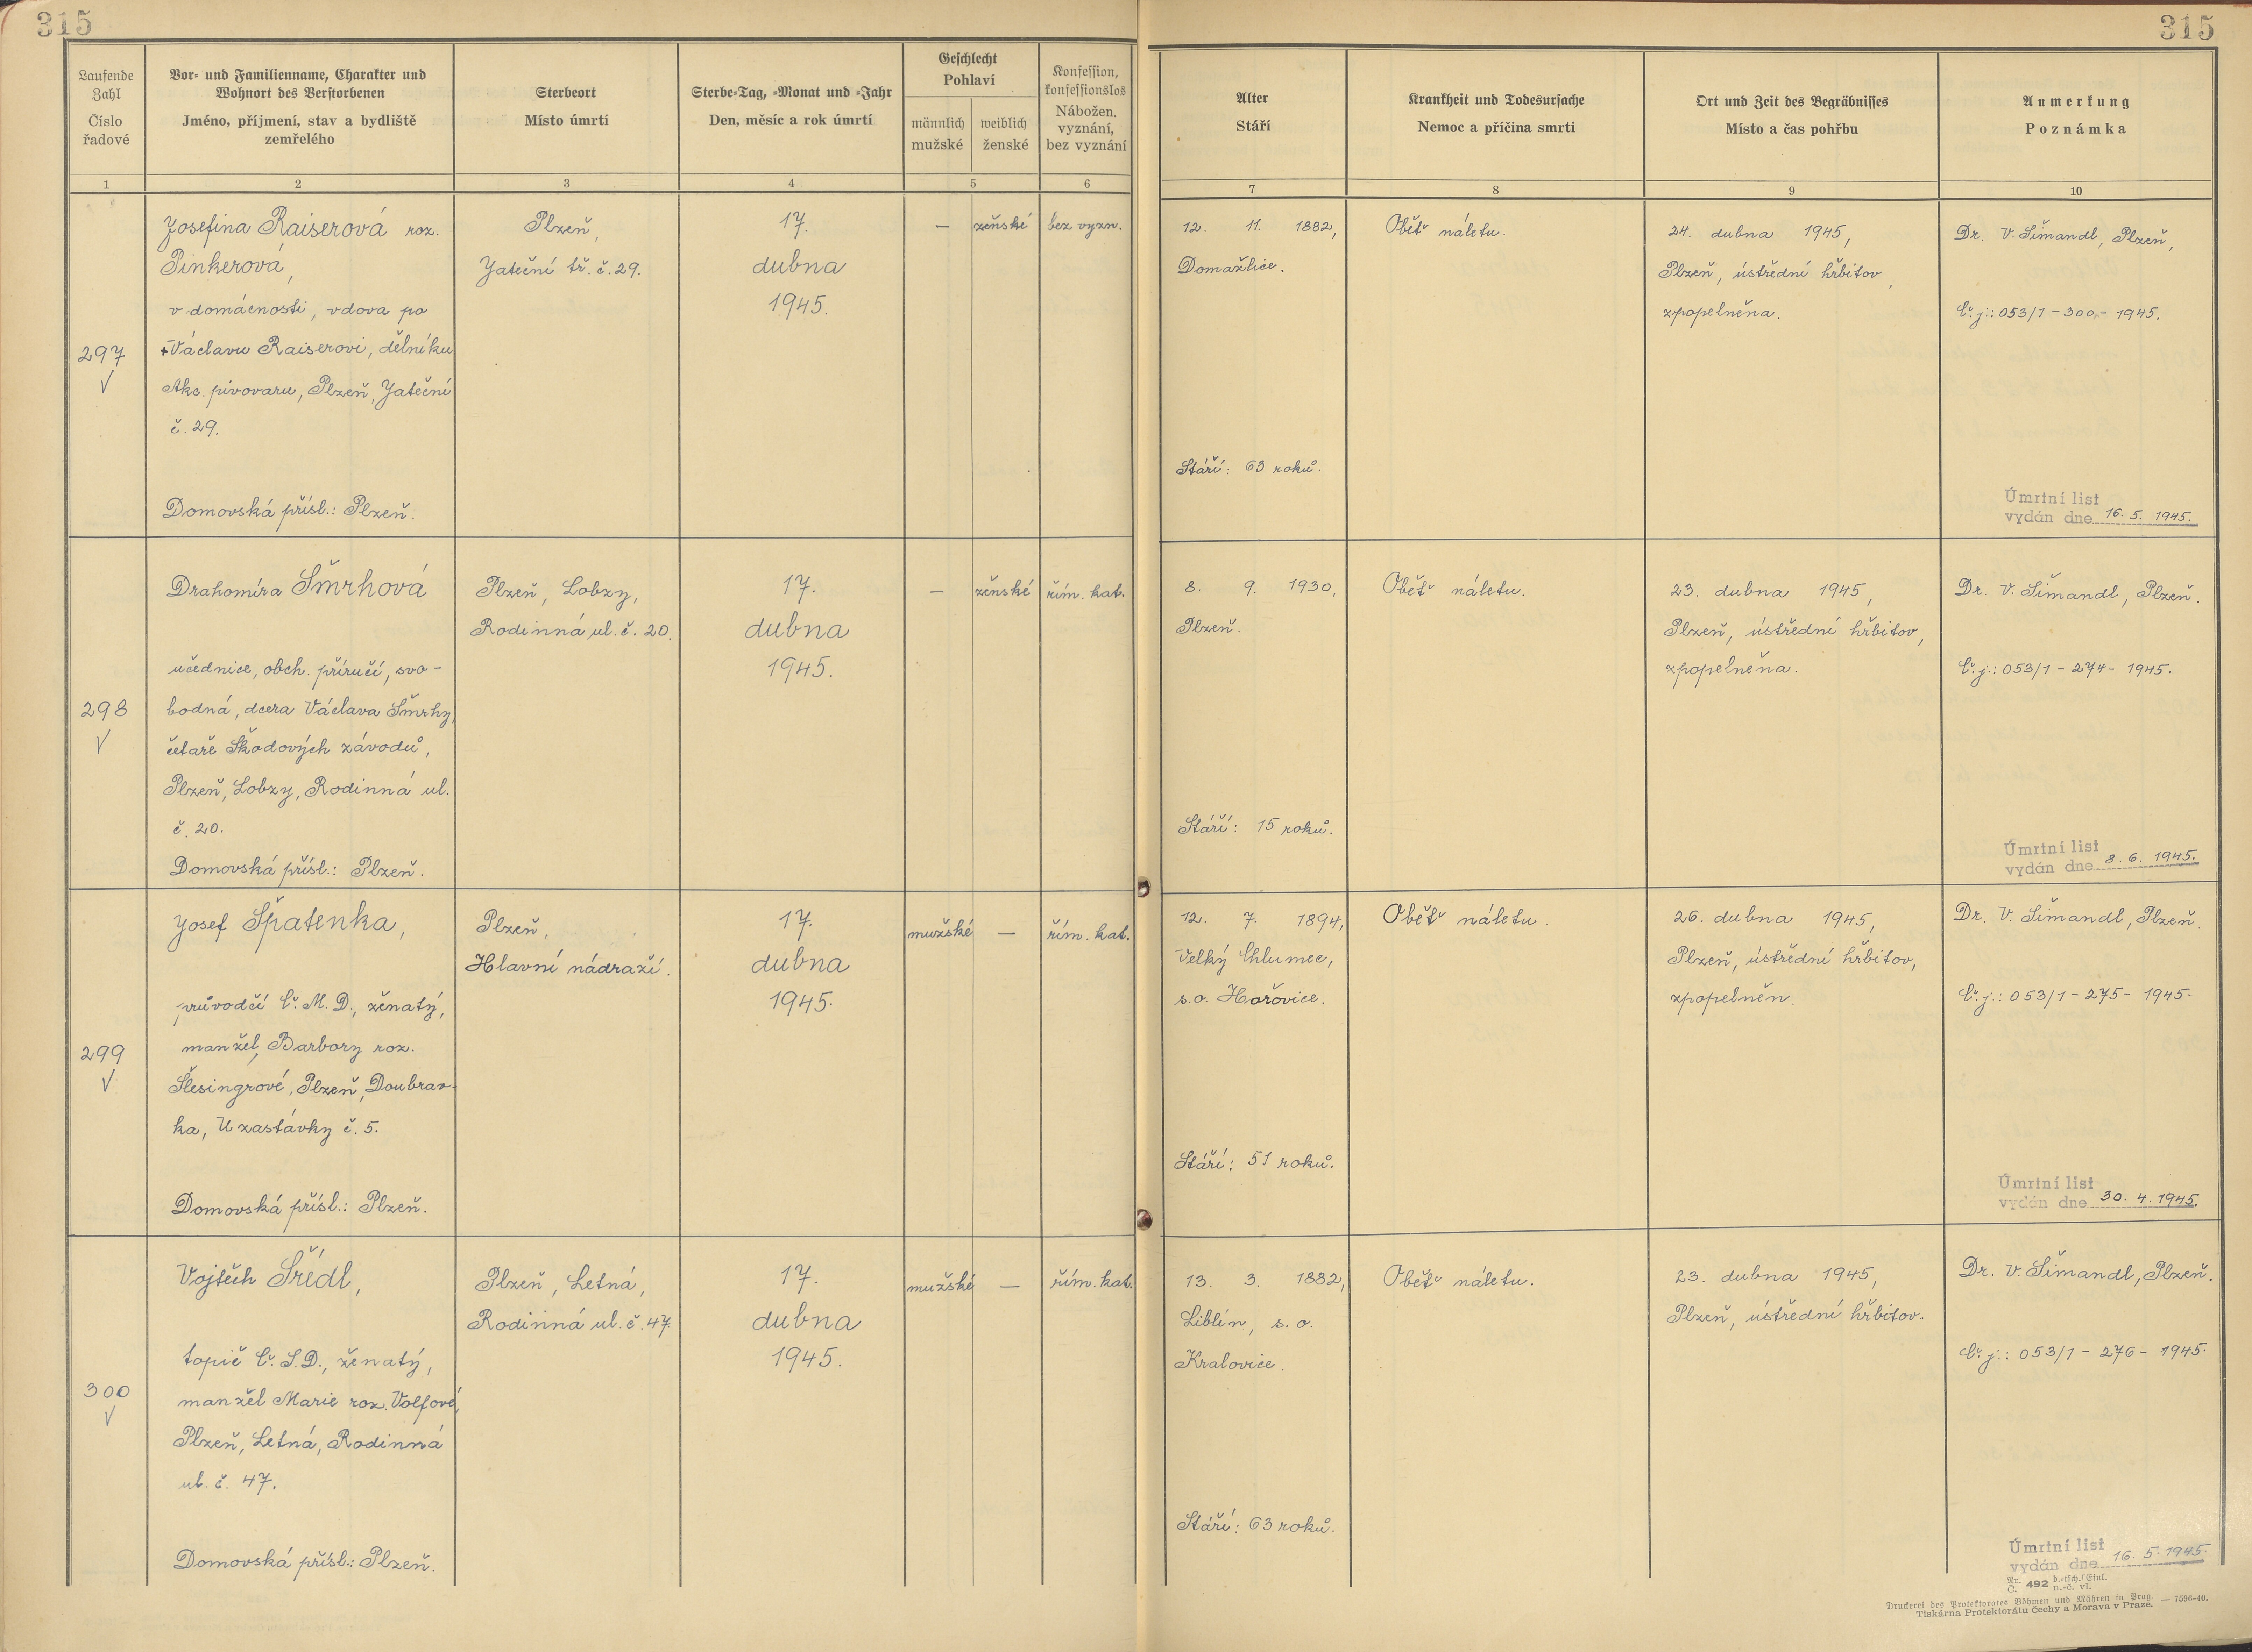 315
315
Laufende Zahl
Číslo řadové
Vor- und Familienname, Charakter und
Wohnort des Verstorbenen
Jméno, příjmení, stav a bydliště
zemřelého
Sterbeort
Místo úmrtí
Sterbe-Tag, -Monat und -Jahr
Den, měsíc a rok úmrtí
Geschlecht
Pohlaví
männlich
mužské
weiblich
ženské
Konfession,
konfessionslos
Nábožen.
vyznání,
bez vyznání
Alter
Stáří
Krankheit und Todesursache
Nemoc a příčina smrti
Ort und Zeit des Begräbnisses
Místo a čas pohřbu
Anmerkung
Poznámka
1
2
3
4
5
6
7
8
9
10
297
Josefina Raiserová roz.
Pinkerová,
v domácnosti, vdova po
+Václavu Raiserovi, dělníku
Akc. pivovaru, Plzeň, Jateční
č. 29.
Domovská přísl.: Plzeň.
Plzeň,
Jateční tř. č. 29.
17.
dubna
1945.
—
ženské
bez vyzn.
12. 11. 1882,
Domažlice.
Stáří: 63 roků.
Oběť náletu.
24. dubna 1945,
Plzeň, ústřední hřbitov,
zpopelněna.
Dr. V. Šimandl, Plzeň,
Č.j.: 053/1 - 300 - 1945.
Úmrtní list
vydán dne 16. 5. 1945.
298
Drahomíra Šmrhová
učednice, obch. příručí, svo-
bodná, dcera Václava Šmrhy,
četaře Škodových závodů,
Plzeň, Lobzy, Rodinná ul.
č. 20.
Domovská přísl.: Plzeň.
Plzeň, Lobzy,
Rodinná ul. č. 20.
17.
dubna
1945.
—
ženské
řím. kat.
8. 9. 1930,
Plzeň.
Stáří: 15 roků.
Oběť náletu.
23. dubna 1945,
Plzeň, ústřední hřbitov,
zpopelněna.
Dr. V. Šimandl, Plzeň.
Č.j.: 053/1 - 274 - 1945.
Úmrtní list
vydán dne 8. 6. 1945.
299
Josef Špatenka,
průvodčí Č.M.D., ženatý,
manžel Barbory roz.
Šlesingrové, Plzeň, Doubrav-
ka, U zastávky č. 5.
Domovská přísl.: Plzeň.
Plzeň,
Hlavní nádraží.
17.
dubna
1945.
mužské
—
řím. kat.
12. 7. 1894,
Velký Chlumec,
s.o. Hořovice.
Stáří: 51 roků.
Oběť náletu.
26. dubna 1945,
Plzeň, ústřední hřbitov,
zpopelněn.
Dr. V. Šimandl, Plzeň.
Č.j.: 053/1 - 275 - 1945.
Úmrtní list
vydán dne 30. 4. 1945.
300
Vojtěch Šrédl,
topič Č.S.D., ženatý,
manžel Marie roz. Volfové,
Plzeň, Letná, Rodinná
ul. č. 47.
Domovská přísl.: Plzeň.
Plzeň, Letná,
Rodinná ul. č. 47.
17.
dubna
1945.
mužské
—
řím. kat.
13. 3. 1882,
Liblín, s. o.
Kralovice.
Stáří: 63 roků.
Oběť náletu.
23. dubna 1945,
Plzeň, ústřední hřbitov.
Dr. V. Šimandl, Plzeň.
Č.j.: 053/1 - 276 - 1945.
Úmrtní list
vydán dne 16. 5. 1945.
Nr. Č. 492 d.-tsch. Einl. n.-č. vl.
Druckerei des Protektorates Böhmen und Mähren in Prag. — 7596-40.
Tiskárna Protektorátu Čechy a Morava v Praze.